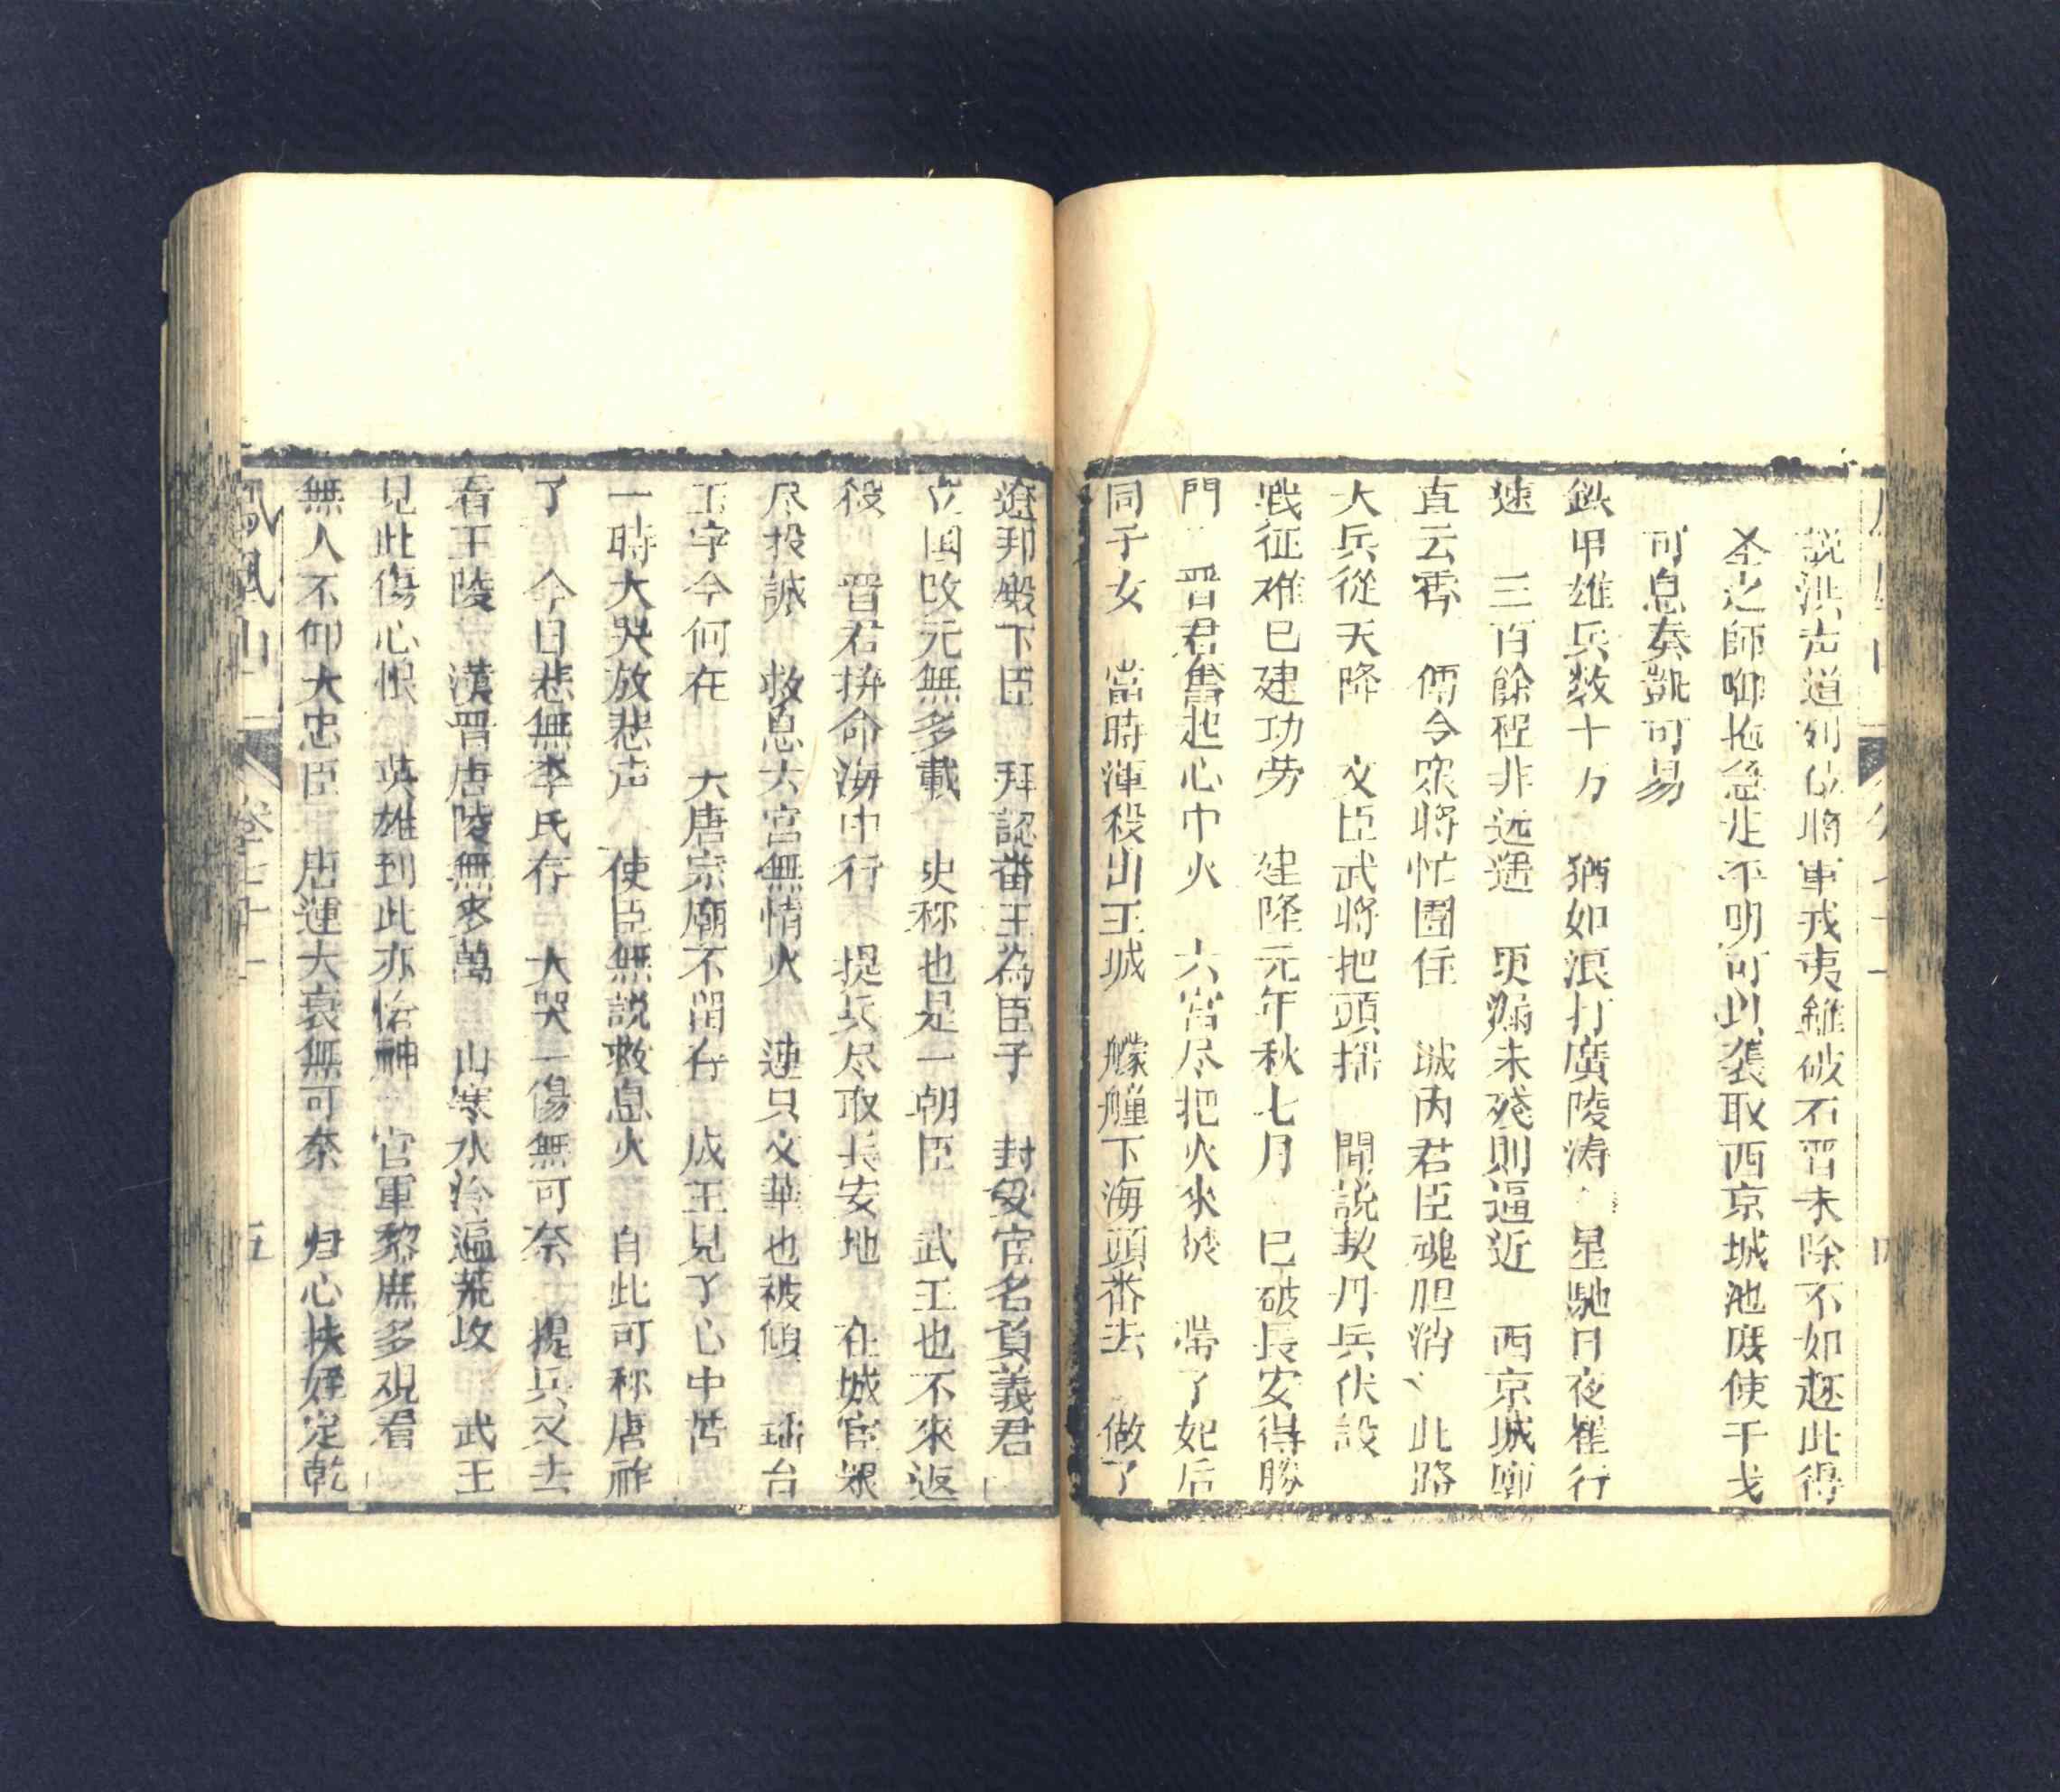 説洪声道列位將軍戎夷雖破石晋未除不如趂此得
圣之師啣拖急走不明可以袭取西京城池庻使干戈
可息奏凱可易
鉄甲雄兵数十万 猶如浪打廣陵涛 星馳日夜崔行
速 三百餘程非远遥 更漏未残則逼近 西京城廓
直云霄 傳令衆將忙圍住 城内君臣魂胆消 此路
大兵從天降 文臣武將把頭揺 聞説契丹兵伏設
戦征难已建功劳 建隆元年秋七月 已破長安得勝
門 晋君奮起心中火 六宮尽把火來焚 带了妃后
同子女 當時渾殺出王城 艨艟下海頭番去 做了
遼邦殿下臣 拜認番王為臣子 封受官名負義君
立国改元無多載 史称也是一朝臣 武王也不來返
役 晋君拚命海中行 提兵尽取長安地 在城官眾
尽投誠 救息六宮無情火 連只文華也被傾 瑶台
玉宇今何在 大唐宗廟不留存 成王見了心中苦
一時大哭放悲声 使臣無説救息火 自此可称唐祚
了 今日悲無李氏存 大哭一傷無可奈 提兵又去
看王陵 漢晋唐陵無多萬 山寒水冷逼荒坟 武王
見此傷心恨 英雄到此亦愴神 官軍黎庶多观看
無人不仰大忠臣 唐運大衰無可奈 归心扶姪定乾
鳳凰山 卷七十一 五